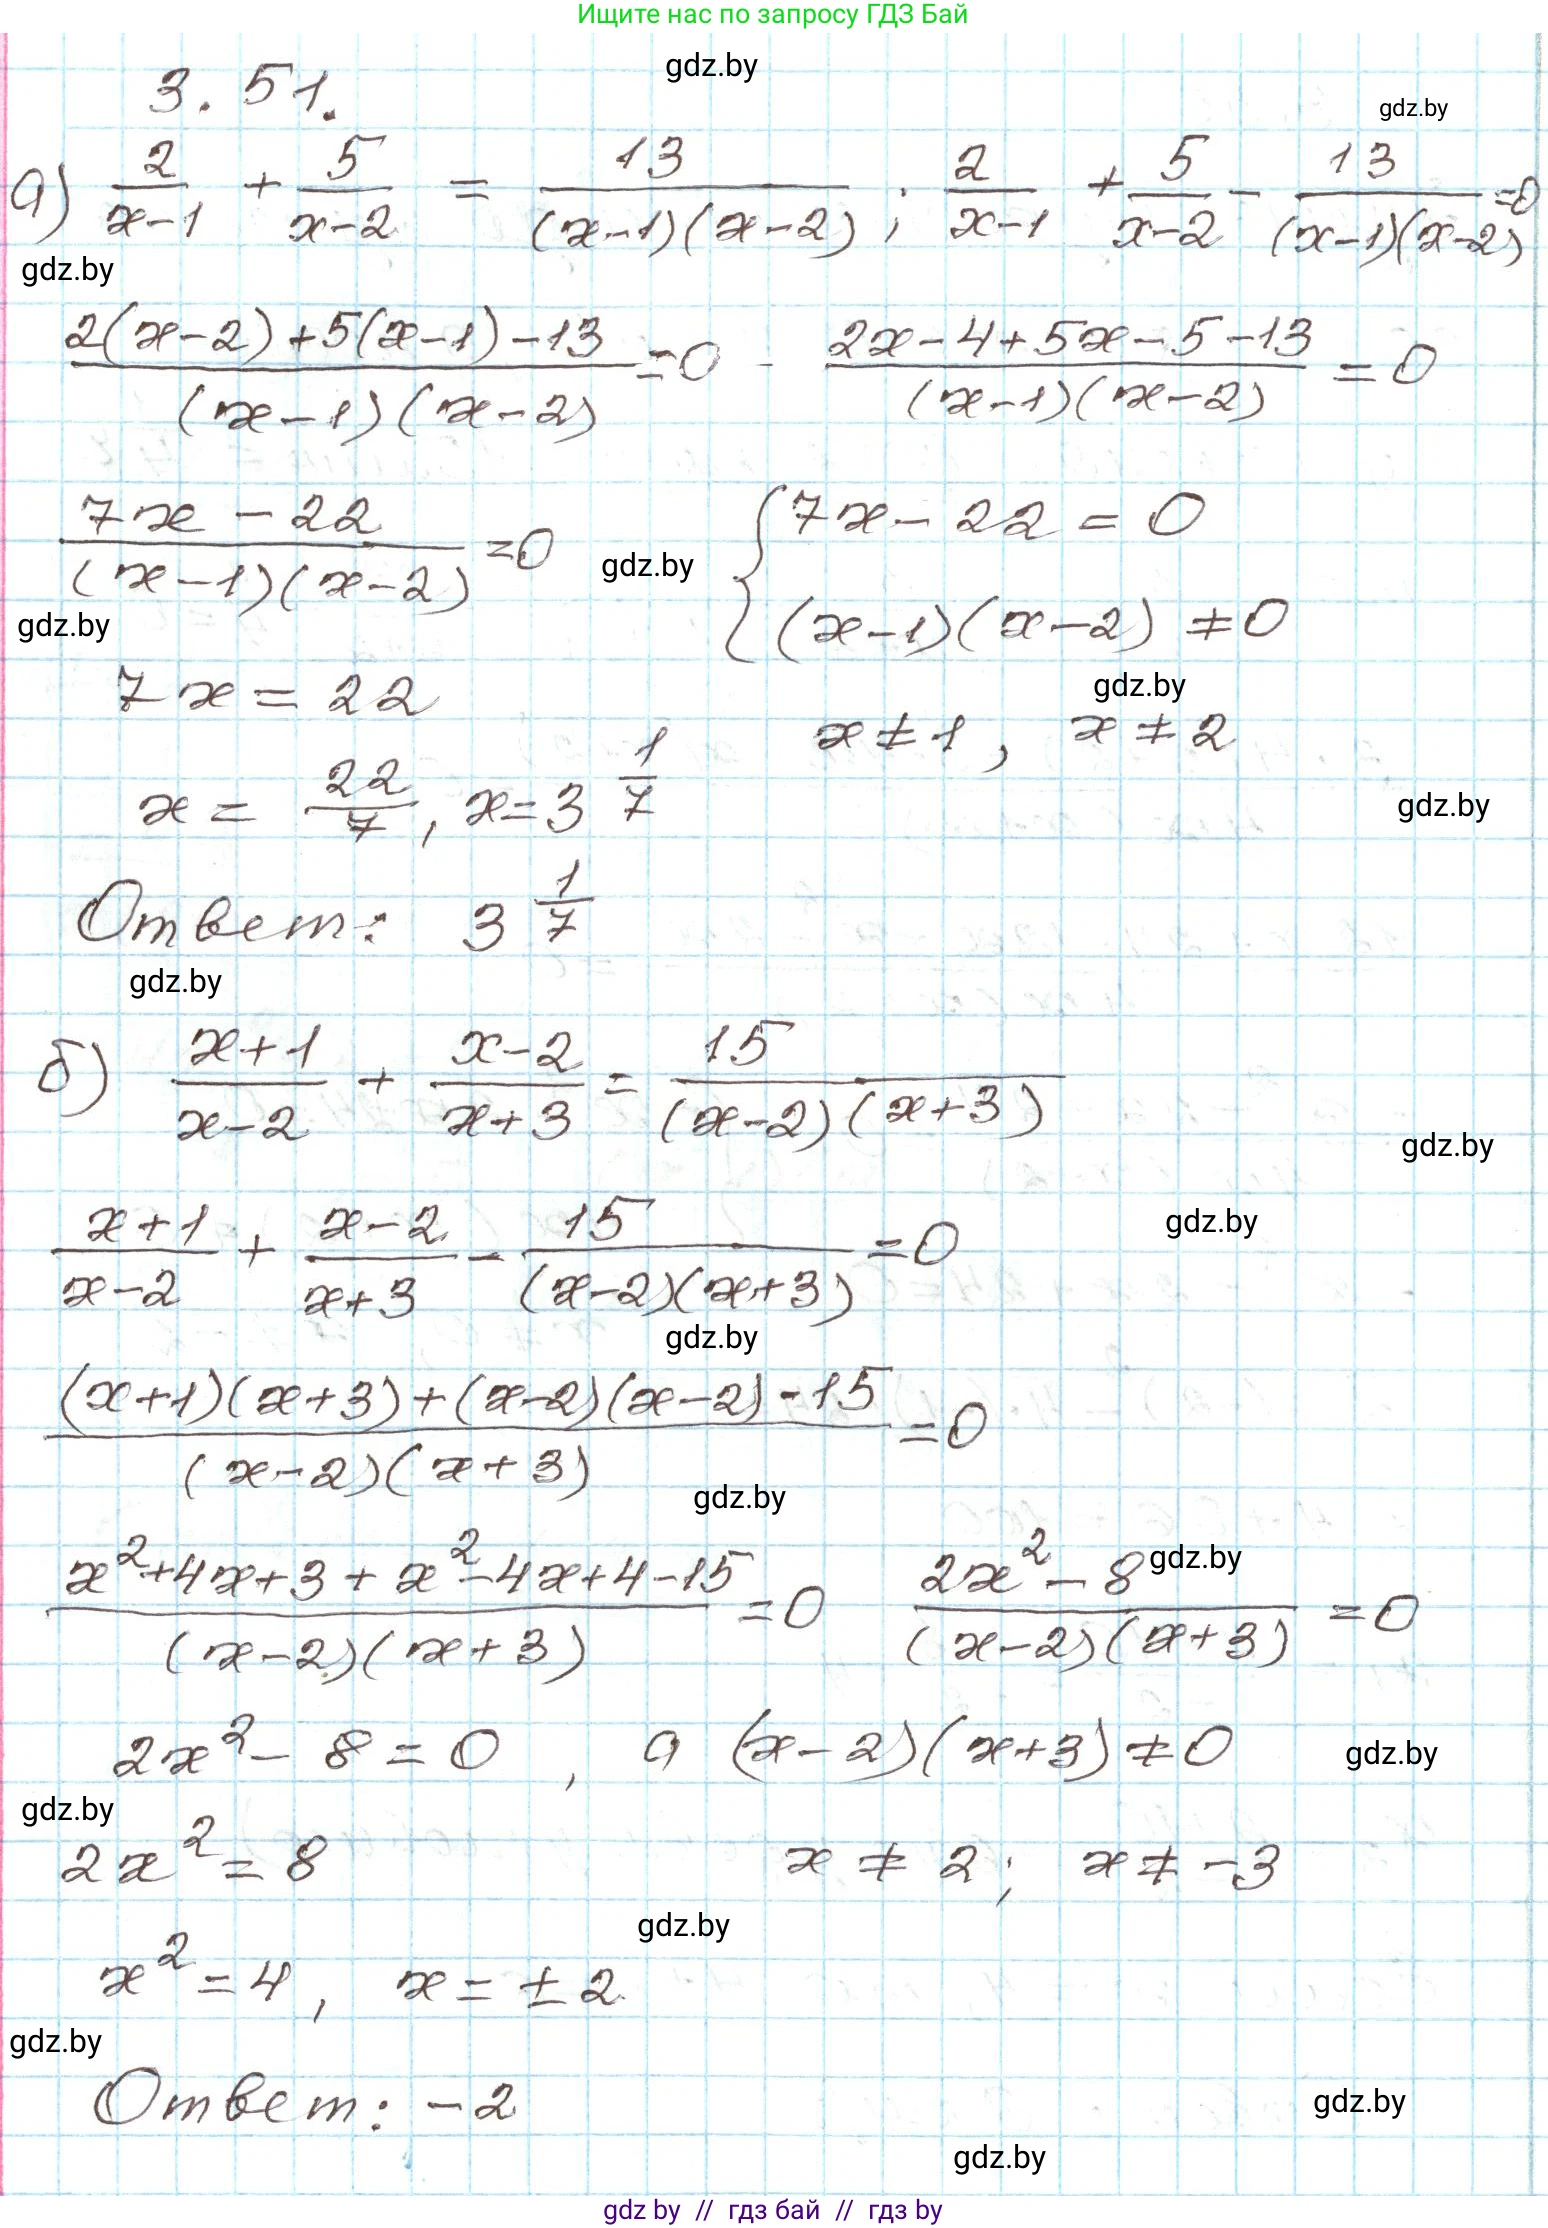 Ищите нас по запросу ГДЗ Бай
gdz.by
3.51.
gdz.by
а) 2/(x-1) + 5/(x-2) = 13/((x-1)(x-2)); 2/(x-1) + 5/(x-2) - 13/((x-1)(x-2)) =0
gdz.by
(2(x-2)+5(x-1)-13)/((x-1)(x-2)) =0 - (2x-4+5x-5-13)/((x-1)(x-2)) = 0
(7x-22)/((x-1)(x-2)) =0 gdz.by { 7x-22=0
(x-1)(x-2) ≠ 0
gdz.by
7x = 22 gdz.by
x ≠ 1, x ≠ 2
x = 22/7, x = 3 1/7 gdz.by
Ответ: 3 1/7
gdz.by
б) (x+1)/(x-2) + (x-2)/(x+3) = 15/((x-2)(x+3))
gdz.by
(x+1)/(x-2) + (x-2)/(x+3) - 15/((x-2)(x+3)) =0 gdz.by
gdz.by
((x+1)(x+3)+(x-2)(x-2)-15)/((x-2)(x+3)) =0
gdz.by
(x²+4x+3+x²-4x+4-15)/((x-2)(x+3)) =0 (2x²-8)/((x-2)(x+3)) =0 gdz.by
2x²-8=0, а (x-2)(x+3)≠0 gdz.by
gdz.by
2x²=8 x≠2; x≠-3
gdz.by
x²=4, x=±2
gdz.by
Ответ: -2 gdz.by
gdz.by
gdz by // гдз бай // гдз by